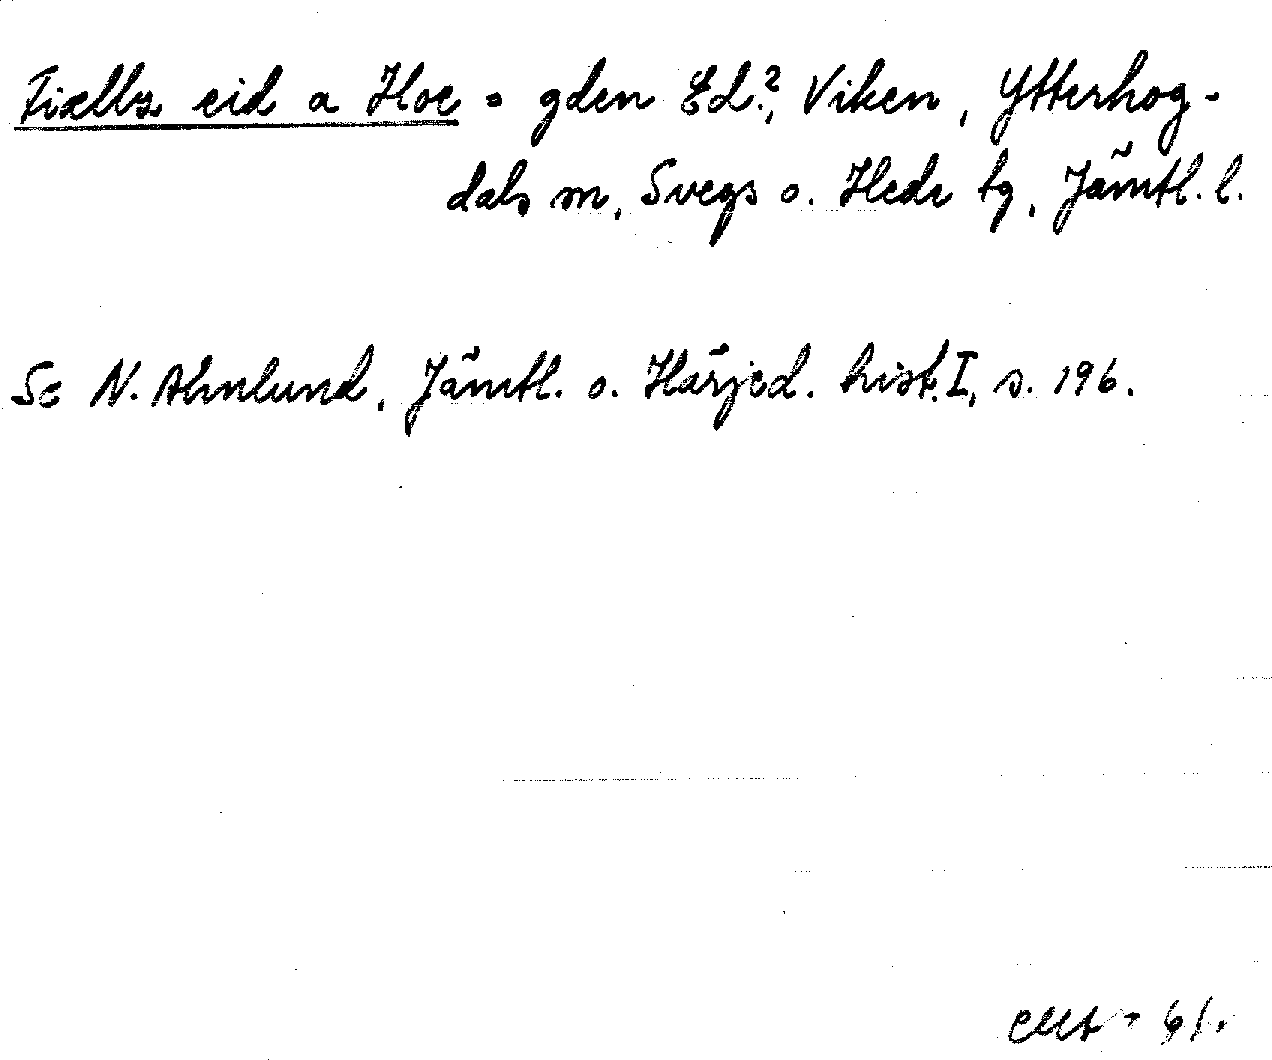 Fiællz eid a Hoe = gden Ed?, Viken, Ytterhog-
dals sn, Svegs o. Hede tg, Jämtl. l.
Se N. Ahnlund, Jämtl. o. Härjed. hist. I, s. 196.
61.